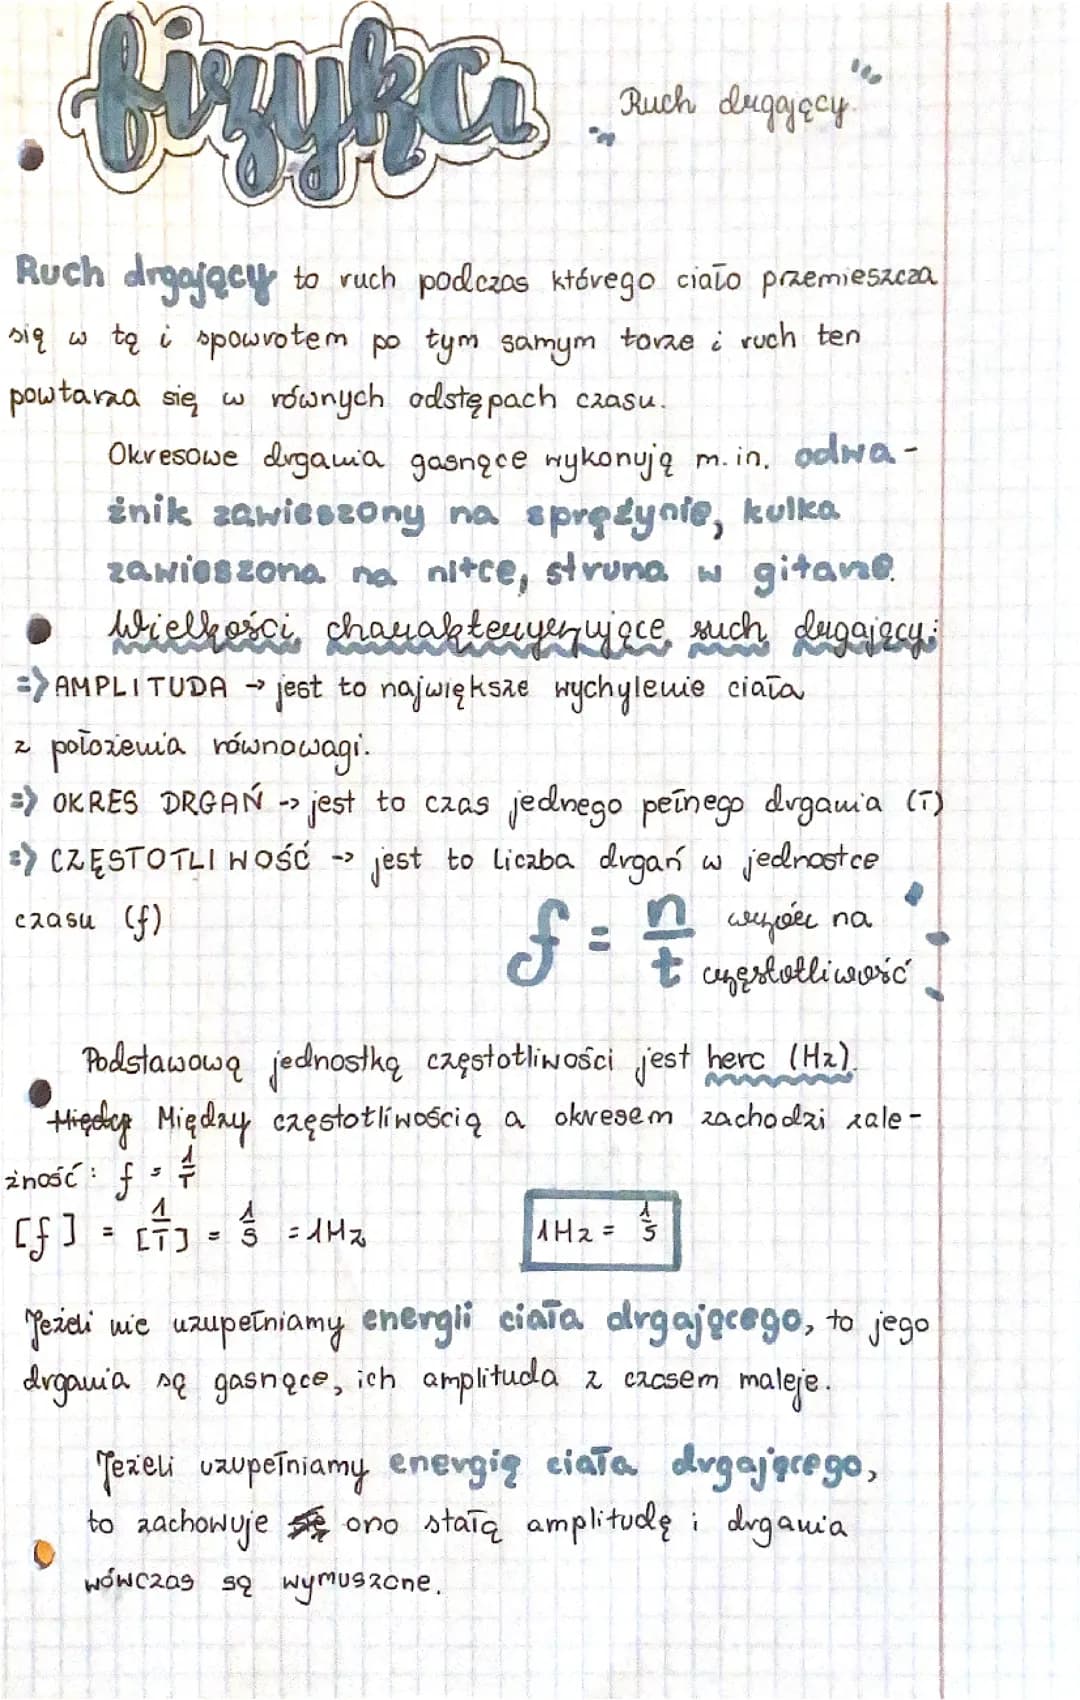 fizyka
"Ruch drgający"
Ruch drgający to ruch podczas którego ciało przemieszcza
się w tę i spowrotem po tym samym torze i ruch ten
powtarza się w równych odstępach czasu.
Okresowe drgania gasnące wykonują m.in. odwa-
żnik zawieszony na sprężynie, kulka
zawieszona na nitce, struna w gitarze.
Wielkości charakteryzujące ruch drgający:
=> AMPLITUDA → jest to największe wychylenie ciała
z położenia równowagi.
=> OKRES DRGAŃ -> jest to czas jednego pełnego drgania (T)
=> CZĘSTOTLIWOŚĆ -> jest to liczba drgań w jednostce
czasu (f)
f = n/t wzór na
częstotliwość
Podstawową jednostką częstotliwości jest herc (Hz).
Między Między częstotliwością a okresem zachodzi zale-
żność: f = 1/T
[f] = [1/T] = 1/s = 1Hz
1Hz = 1/s
Jeżeli nie uzupełniamy energii ciała drgającego, to jego
drgania są gasnące, ich amplituda z czasem maleje.
Jeżeli uzupełniamy energię ciała drgającego,
to zachowuje się ono stałą amplitudę i drgania
wówczas są wymuszone.